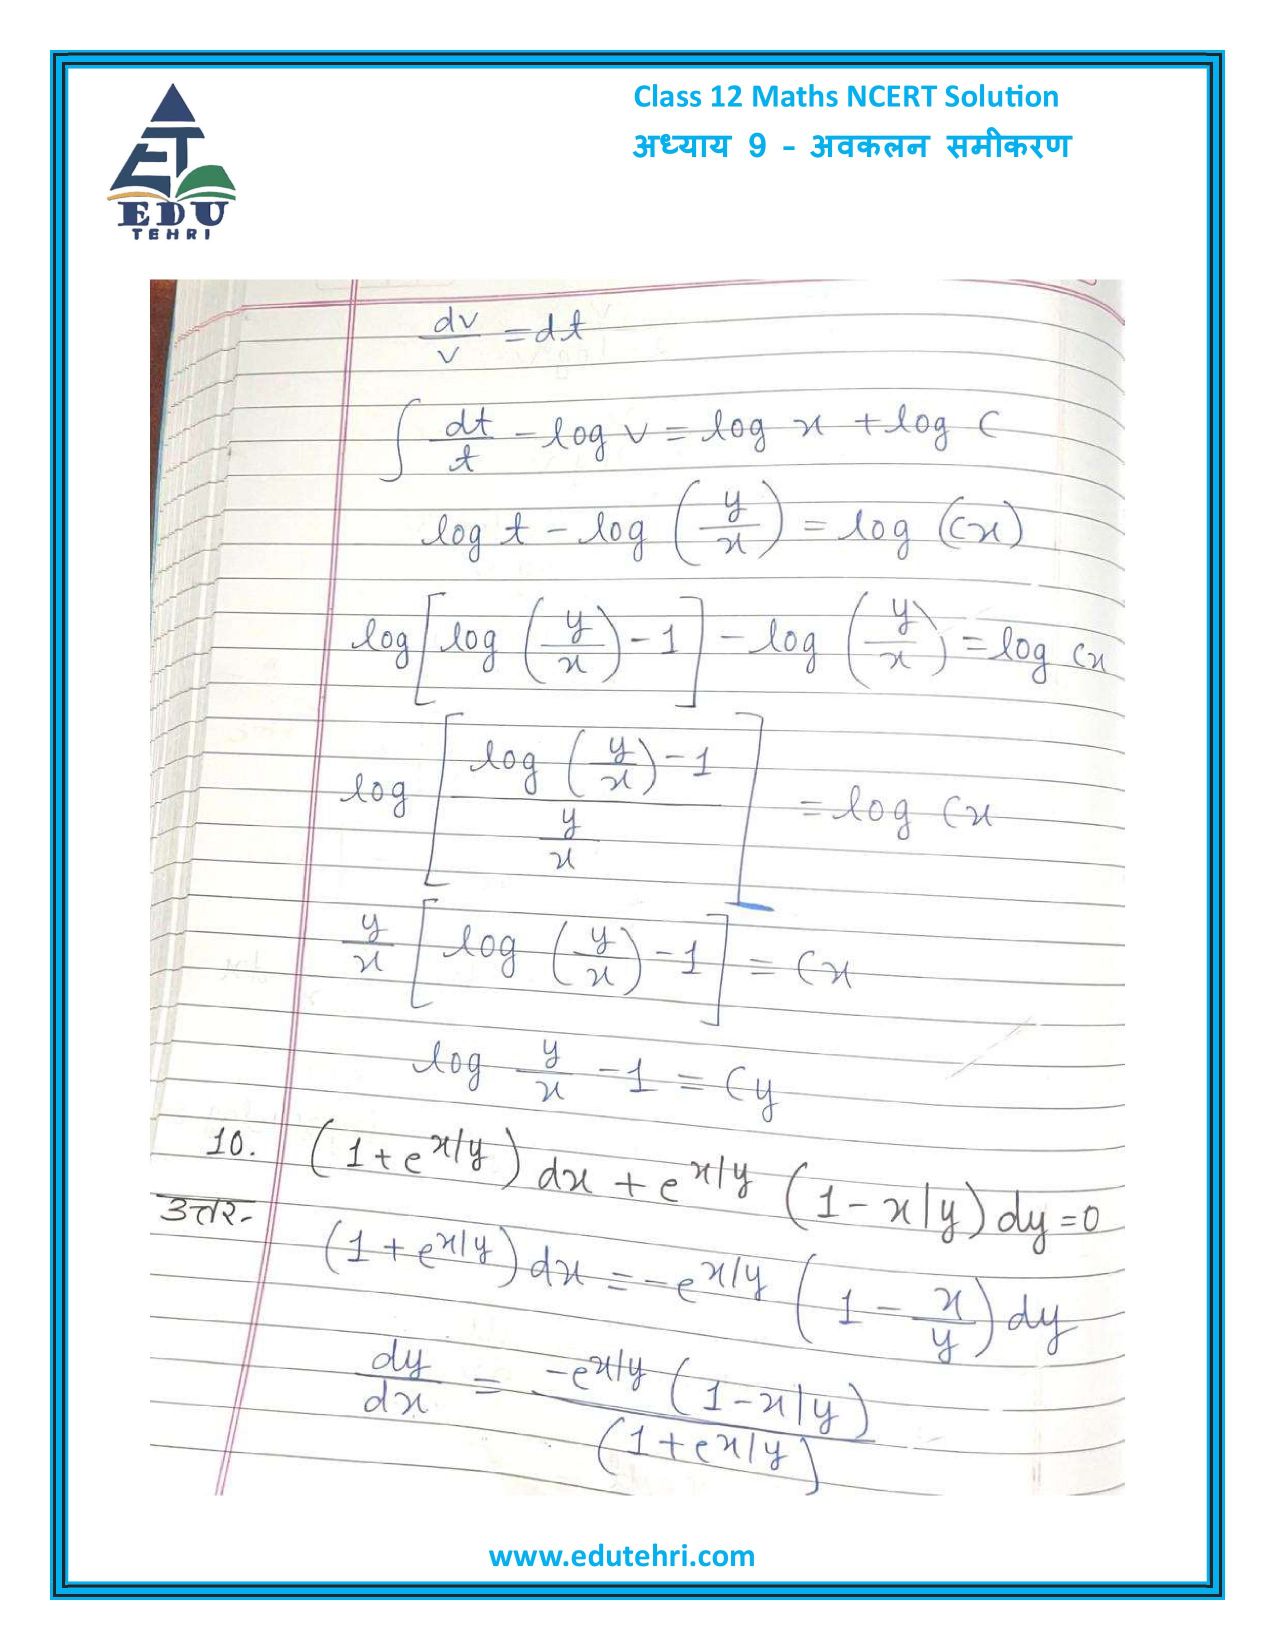 Class 12 Maths NCERT Solution
अध्याय 9 - अवकलन समीकरण
EDU
TEHRI
dv/v = dt
∫ dt/t - log v = log x + log C
log t - log (y/x) = log (Cx)
log [log (y/x) - 1] - log (y/x) = log Cx
log [(log (y/x) - 1)/(y/x)] = log Cx
y/x [log (y/x) - 1] = Cx
log y/x - 1 = Cy
10. (1 + e^x/y) dx + e^x/y (1 - x/y) dy = 0
उत्तर- (1 + e^x/y) dx = -e^x/y (1 - x/y) dy
dy/dx = -e^x/y (1 - x/y) / (1 + e^x/y)
www.edutehri.com